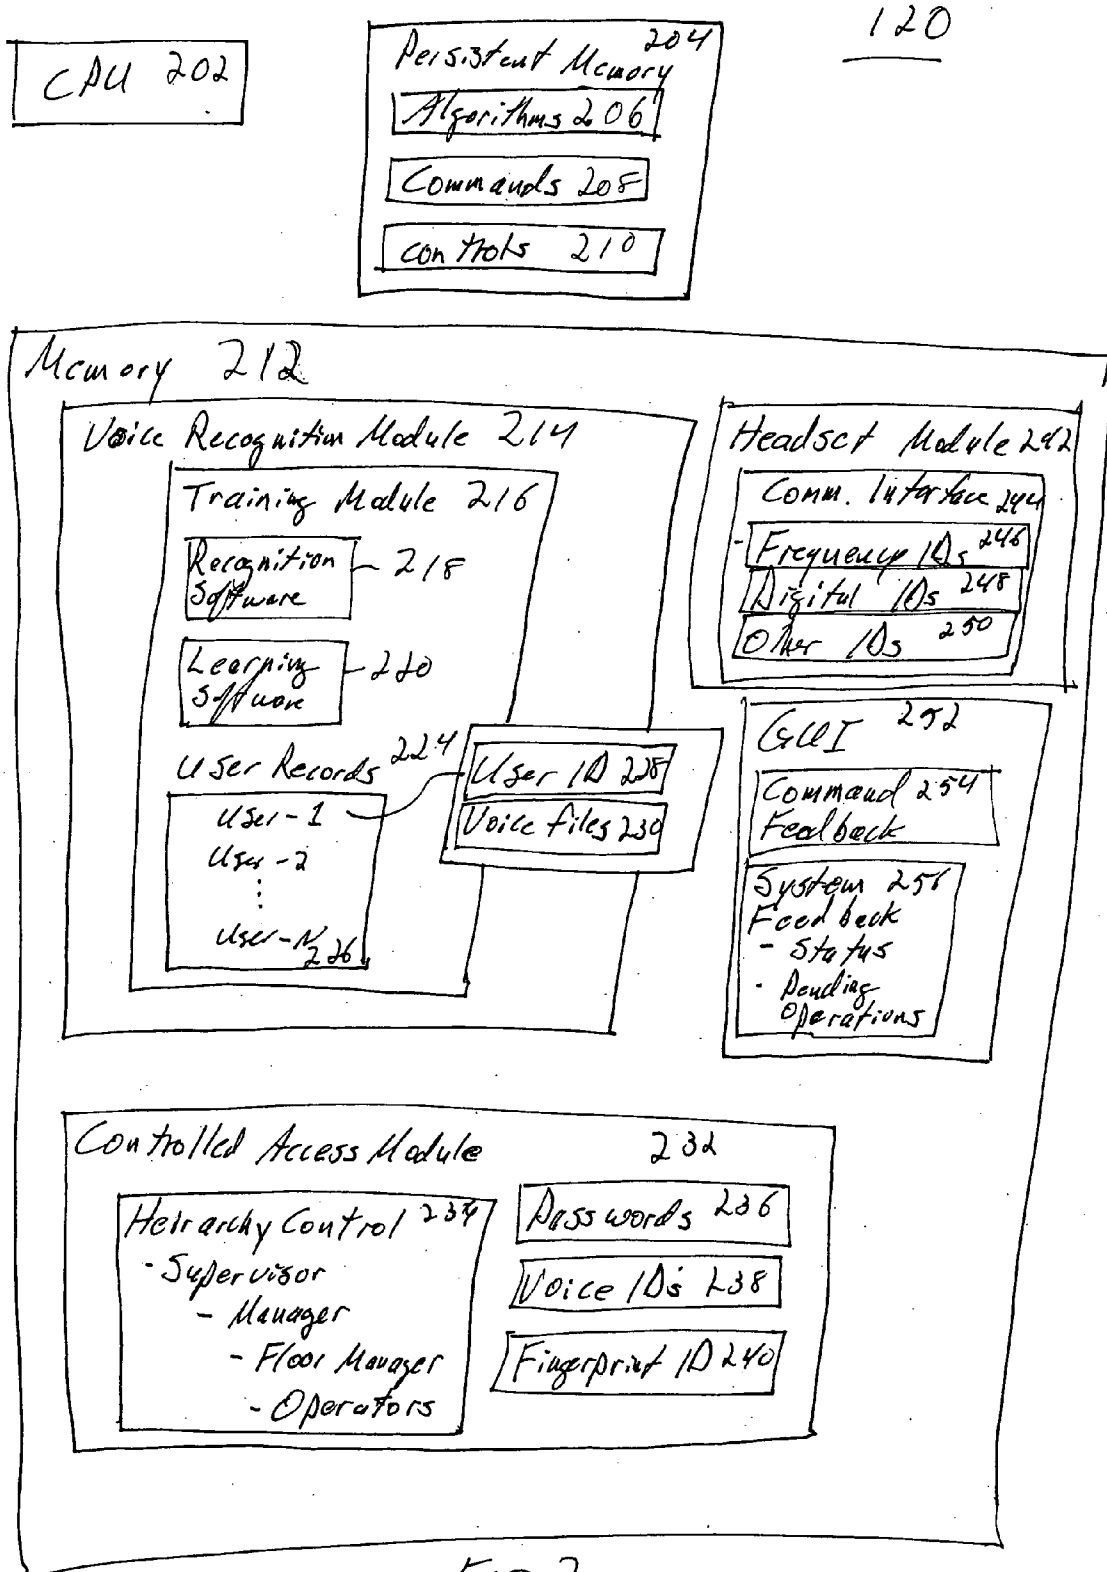 120
CPU 202
Persistent Memory 204
Algorithms 206
Commands 208
controls 210
Memory 212
Voice Recognition Module 214
Training Module 216
Recognition
Software
218
Learning
Software
220
User Records 224
User-1
User-2
User-N
226
User ID 228
Voice files 230
Headset Module 242
Comm. Interface 244
Frequency IDs 246
Digital IDs 248
Other IDs 250
GUI 252
Command 254
Feedback
System 256
Feedback
- Status
- Pending
Operations
Controlled Access Module 232
Heirarchy Control 234
- Supervisor
- Manager
- Floor Manager
- Operators
Passwords 236
Voice IDs 238
Fingerprint ID 240